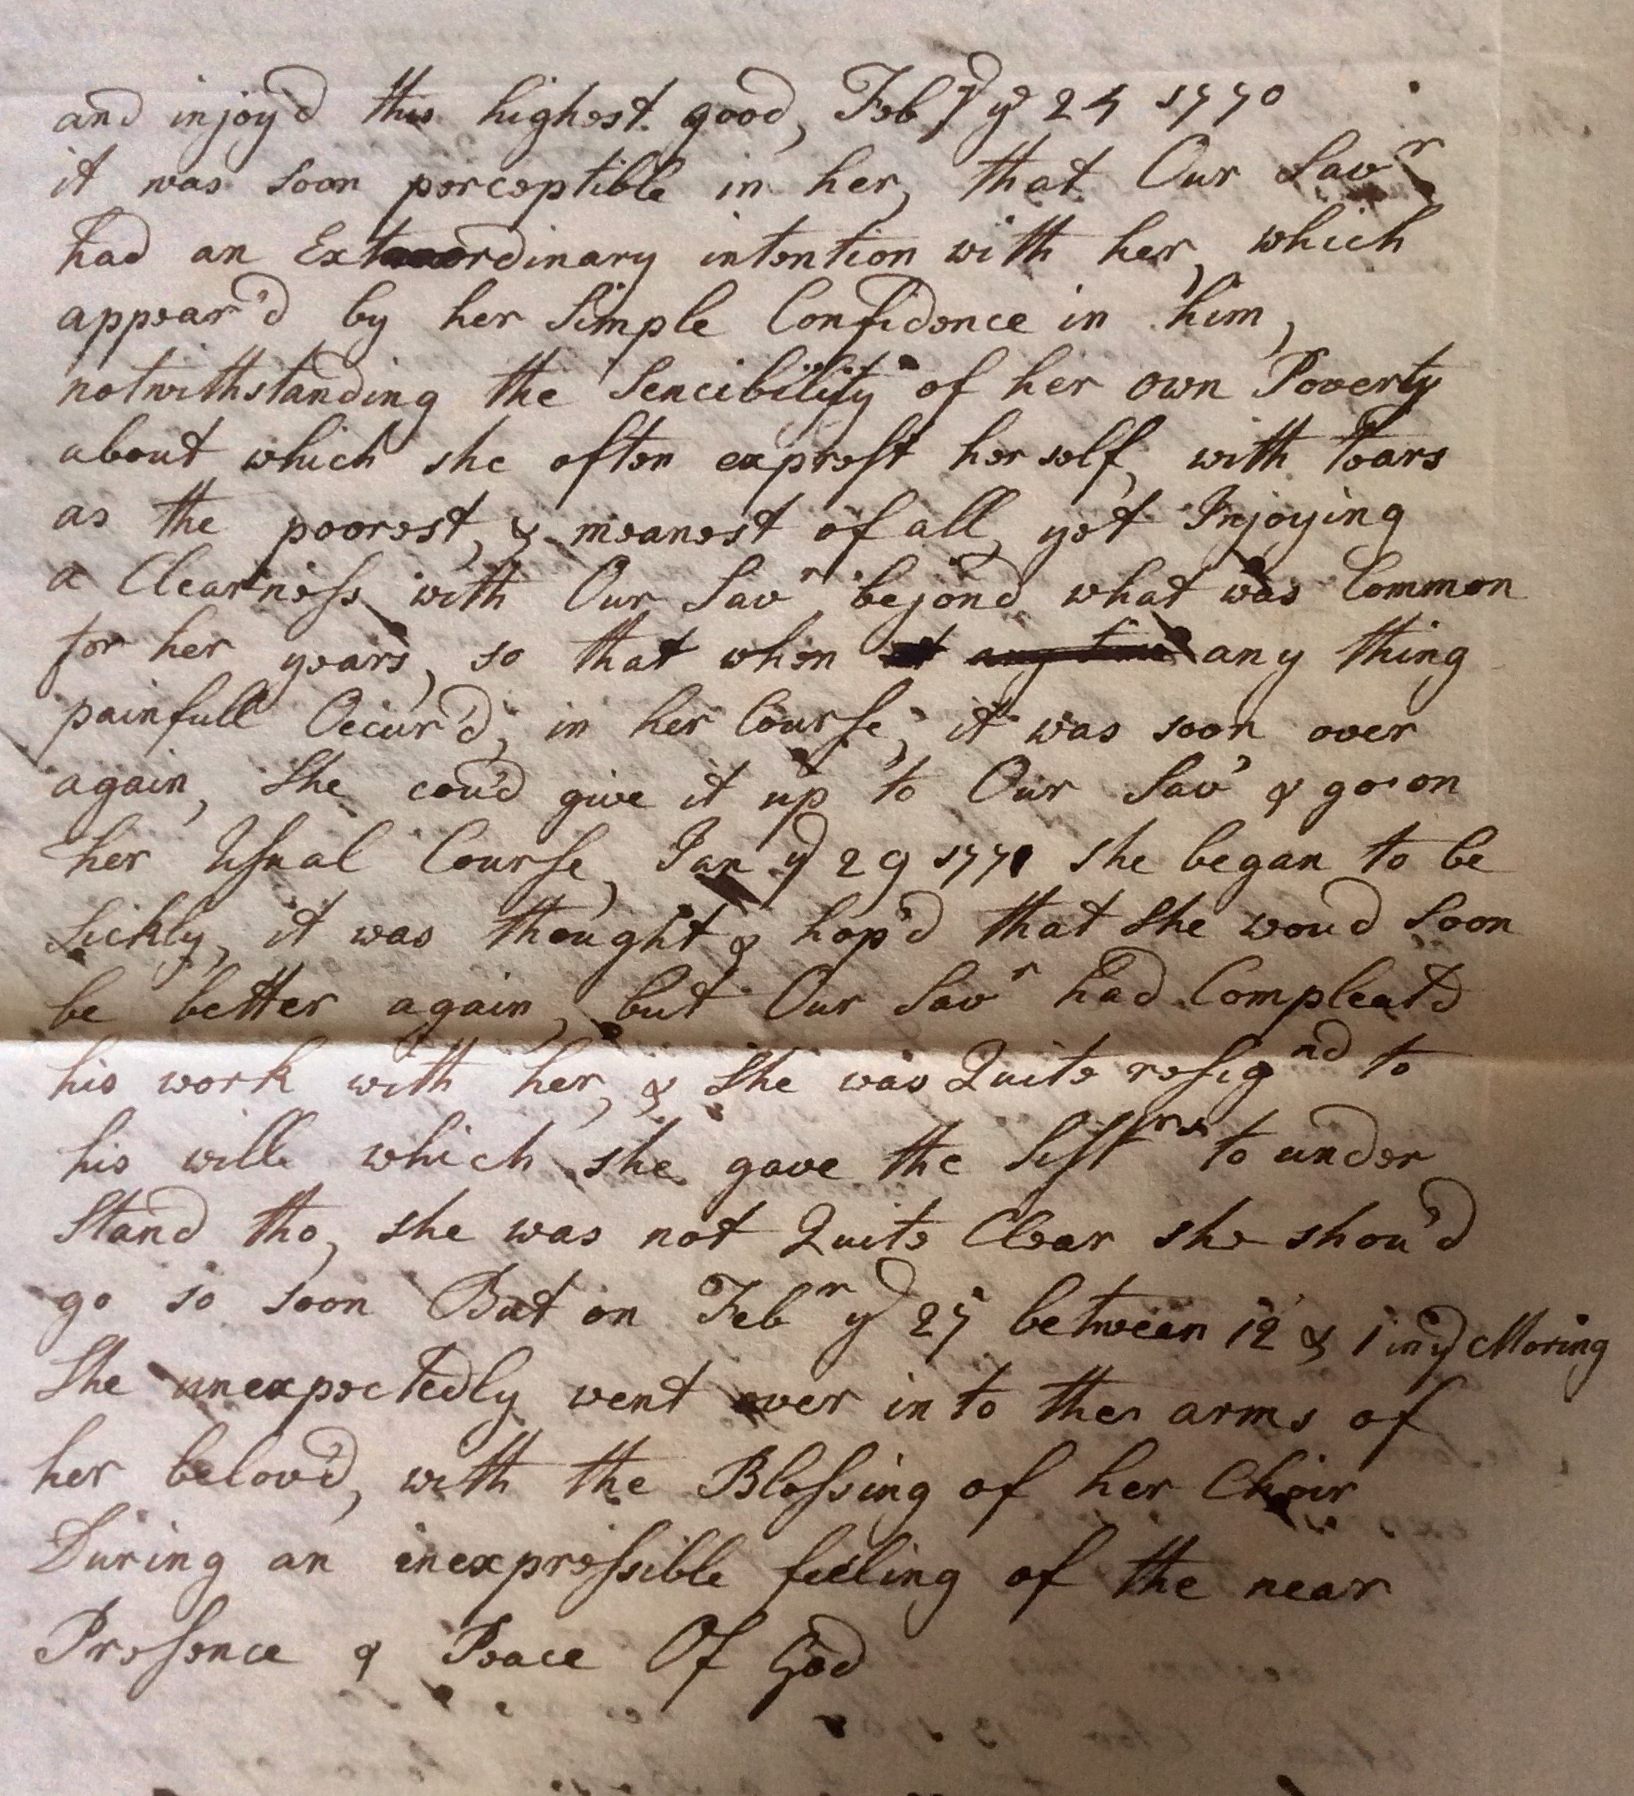 and injoy'd this highest good, Feb ry ye 24 1770
it was soon perceptible in her, that Our Savr
had an Extraordinary intention with her, which
appear'd by her Simple Confidence in him,
notwithstanding the Sencibility of her own Poverty
about which she often exprest her self, with tears
as the poorest, & meanest of all, yet Injoying
a Clearness with Our Savr bejond what was Common
for her years, so that when at any time any thing
painfull Occur'd, in her Course, it was soon over
again, She cou'd give it up to Our Savr & go on
her Usual Course, Jan ye 29 1771 she began to be
Sickly, it was thought & hop'd that She wou'd Soon
be better again, but Our Savr had Compleatd
his work with her, & She was Quite resignd to
his will which she gave the Sistrs to under
Stand tho, she was not Quite Clear she shou'd
go so soon But on Febr ye 27 between 12 & 1 in ye Moring
She unexpectedly went over into the arms of
her belov'd, with the Blessing of her Choir
During an inexpressible feeling of the near
Presence & Peace Of God